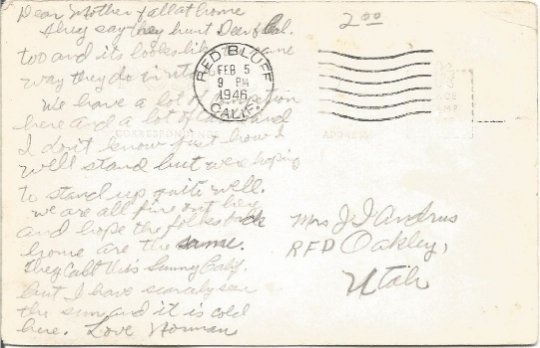 Dear Mother & all at home
They say they hunt Deer of Cal.
too and it looks like the same
way they do in Utah
We have a lot of
here and a lot of
I don't know just how I
will stand but were hoping
to stand up quite well.
we are all fine out here
and hope the folks back
home are the same.
They Call this Sunny Calif.
but I have scarcely seen
the sun and it is cold
here. Love Norman
2.00
RED BLUFF
FEB 5
9 PM
1946
CALIF.
CORRESPONDENCE
ADDRESS
Mrs J J Andrus
RFD Oakley,
Utah